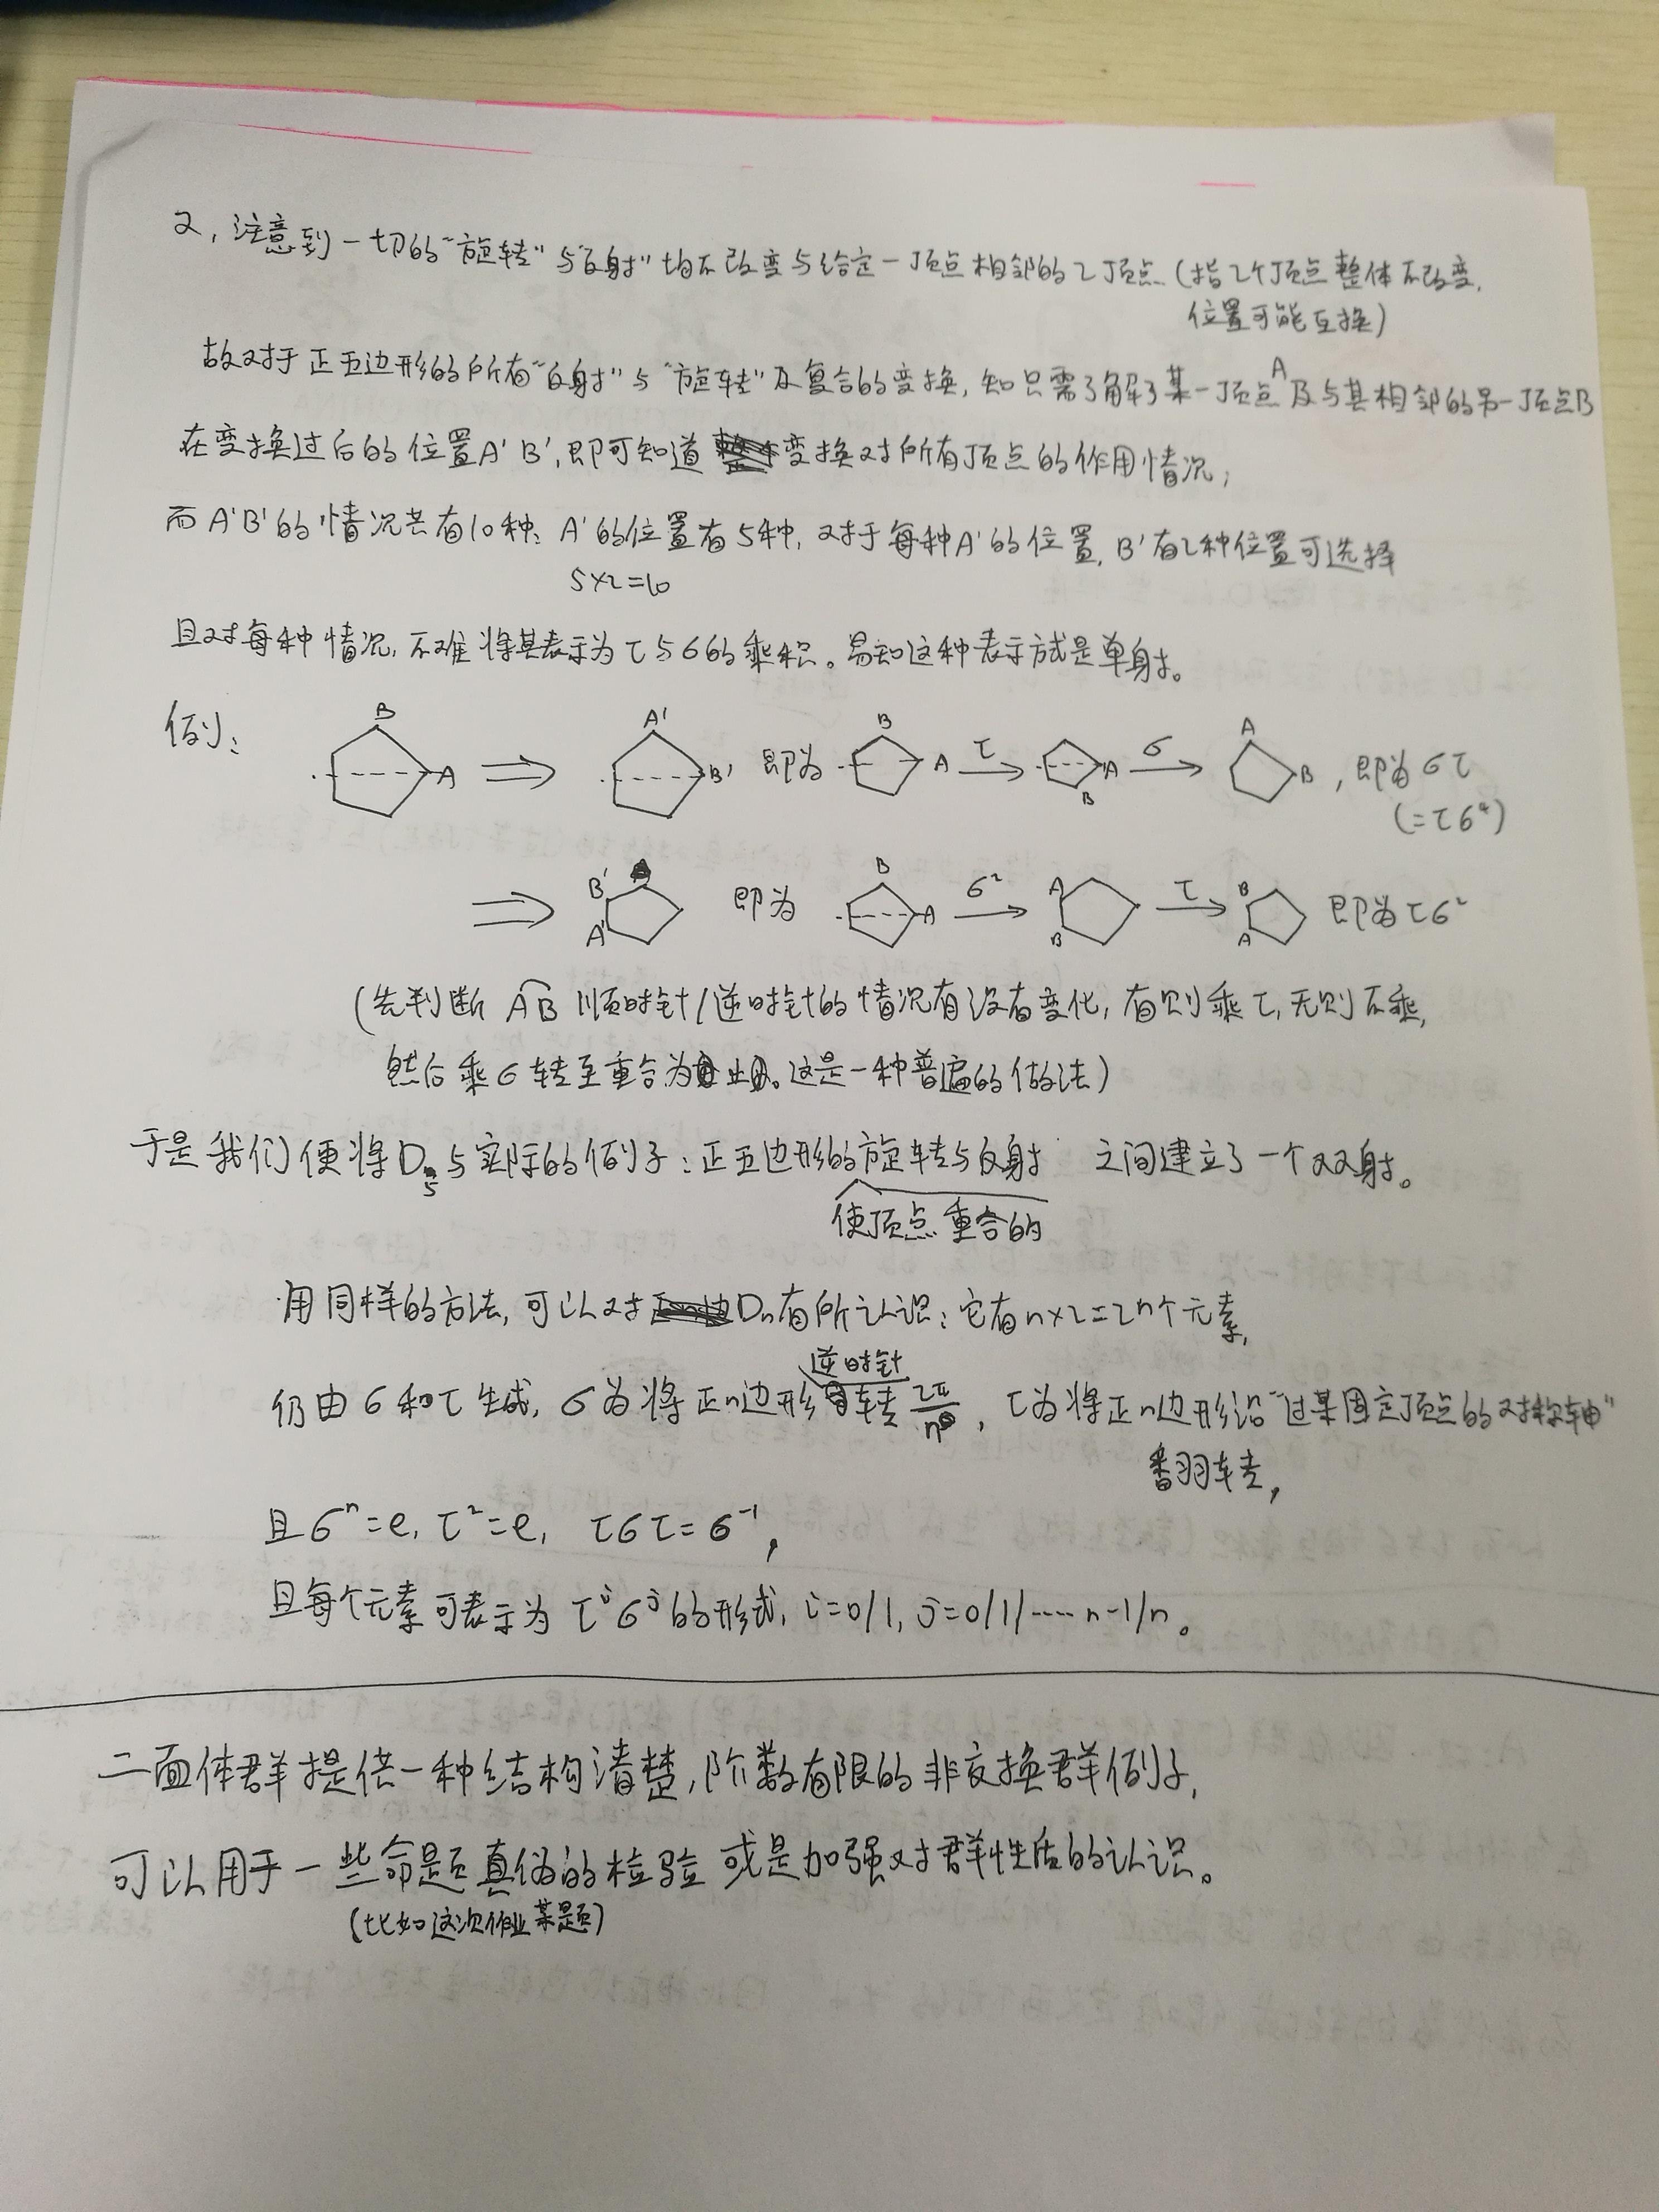 2, 注意到一切的"旋转"与"反射"均不改变与给定一顶点相邻的2顶点 (指2个顶点整体不改变,
位置可能互换)
故对于正五边形的所有"反射"与"旋转"及复合的变换, 知只需了解了某一顶点A及与其相邻的另一顶点B
在变换过后的位置A'B', 即可知道变换对所有顶点的作用情况;
而A'B'的情况共有10种: A'的位置有5种, 对于每种A'的位置, B'有2种位置可选择
5×2=10
且对每种情况, 不难将其表示为τ与σ的乘积。易知这种表示方式是单射。
例:
B A ⇒ A' B' 即为 B A τ→ A B σ→ A B , 即为στ
(=τσ⁴)
⇒ B' A' 即为 B A σ²→ A B τ→ B A 即为τσ²
(先判断 AB 顺时针/逆时针的情况有没有变化, 有则乘τ, 无则不乘,
然后乘σ转至重合为止。这是一种普遍的做法)
于是我们便将D₅与实际的例子: 正五边形的旋转与反射 之间建立了一个双射。
使顶点重合的
用同样的方法, 可以对Dn有所认识: 它有n×2=2n个元素,
仍由σ和τ生成, σ为将正n边形逆时针转2π/n, τ为将正n边形沿"过某固定顶点的对称轴"
翻转,
且σⁿ=e, τ²=e, τστ=σ⁻¹,
且每个元素可表示为τⁱσʲ的形式, i=0/1, j=0/1/····n-1/n。
二面体群提供一种结构清楚, 阶数有限的非交换群例子,
可以用于一些命题真伪的检验或是加强对群性质的认识。
(比如这次作业某题)